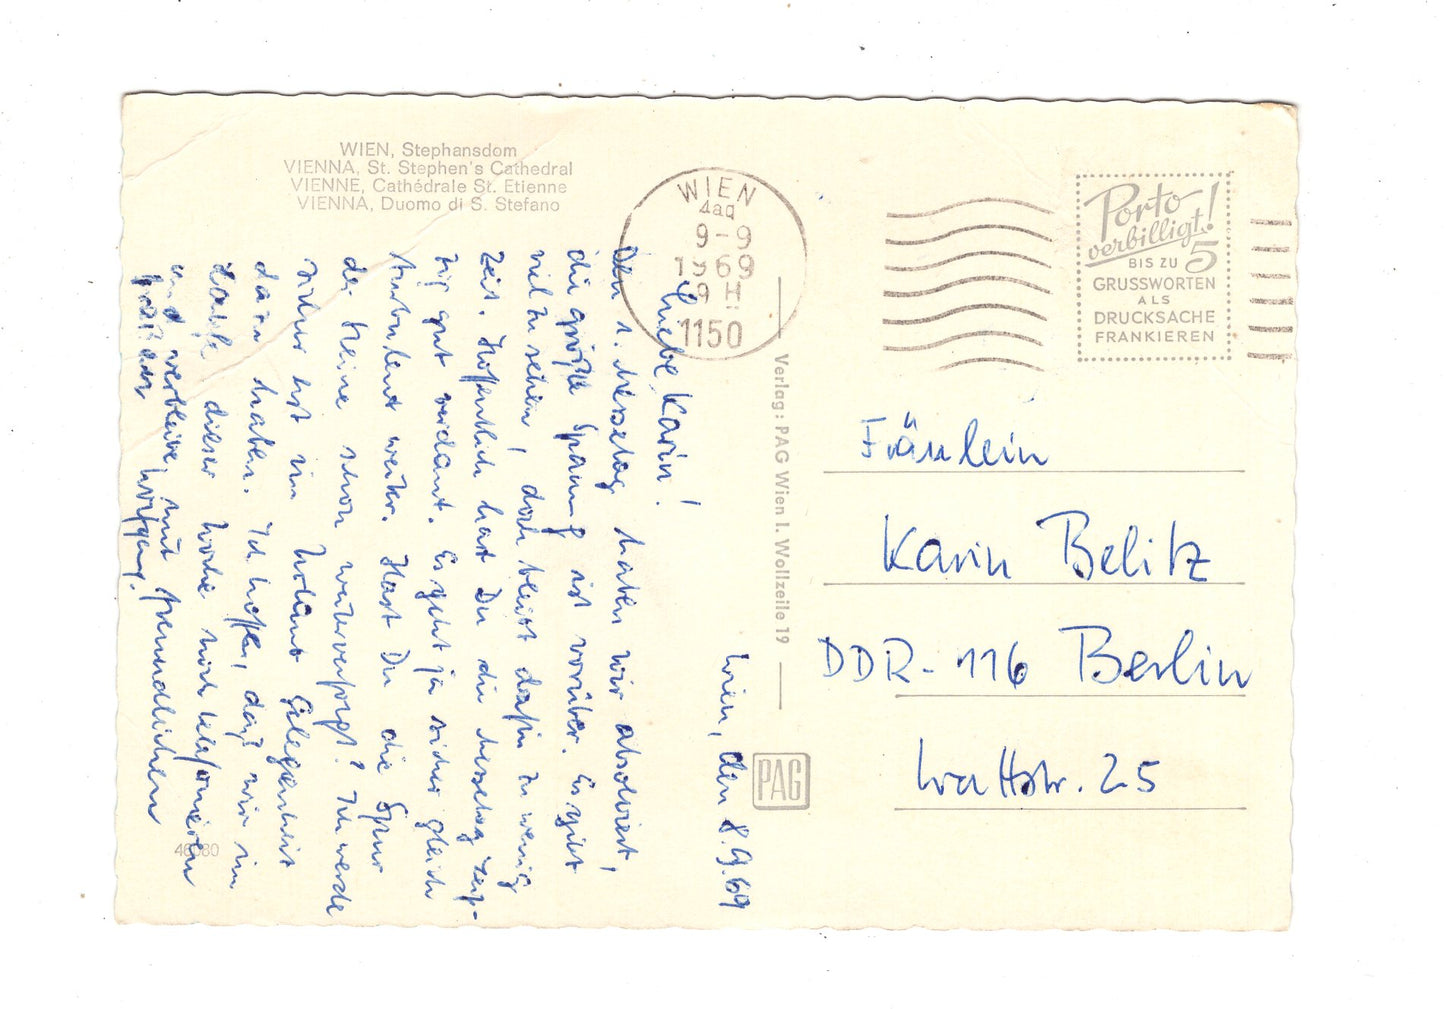 WIEN, Stephansdom
VIENNA, St. Stephen's Cathedral
VIENNE, Cathédrale St. Etienne
VIENNA, Duomo di S. Stefano
WIEN
4aq
9-9
1969
9 H
1150
Porto
verbilligt!
BIS ZU 5
GRUSSWORTEN
ALS
DRUCKSACHE
FRANKIEREN
Wien, den 8.9.69
Liebe Karin!
Den 1. Messetag haben wir absolviert,
die größte Spannung ist vorüber. Es gibt
viel zu sehen, doch bleibt dafür zu wenig
Zeit. Hoffentlich hast Du die
gut verdaut. Es geht ja sicher gleich
weiter. Hast Du die Spur
der Kleine schon weiterverfolgt? Ich werde
sicher erst im Urlaub Gelegenheit
dazu haben. Ich hoffe, daß wir im
Laufe dieser Woche noch telefonieren
und verbleibe mit freundlichen
Grüßen Wolfgang.
Verlag: PAG Wien I. Wollzeile 19
PAG
Fräulein
Karin Belitz
DDR-116 Berlin
Wattstr. 25
46080